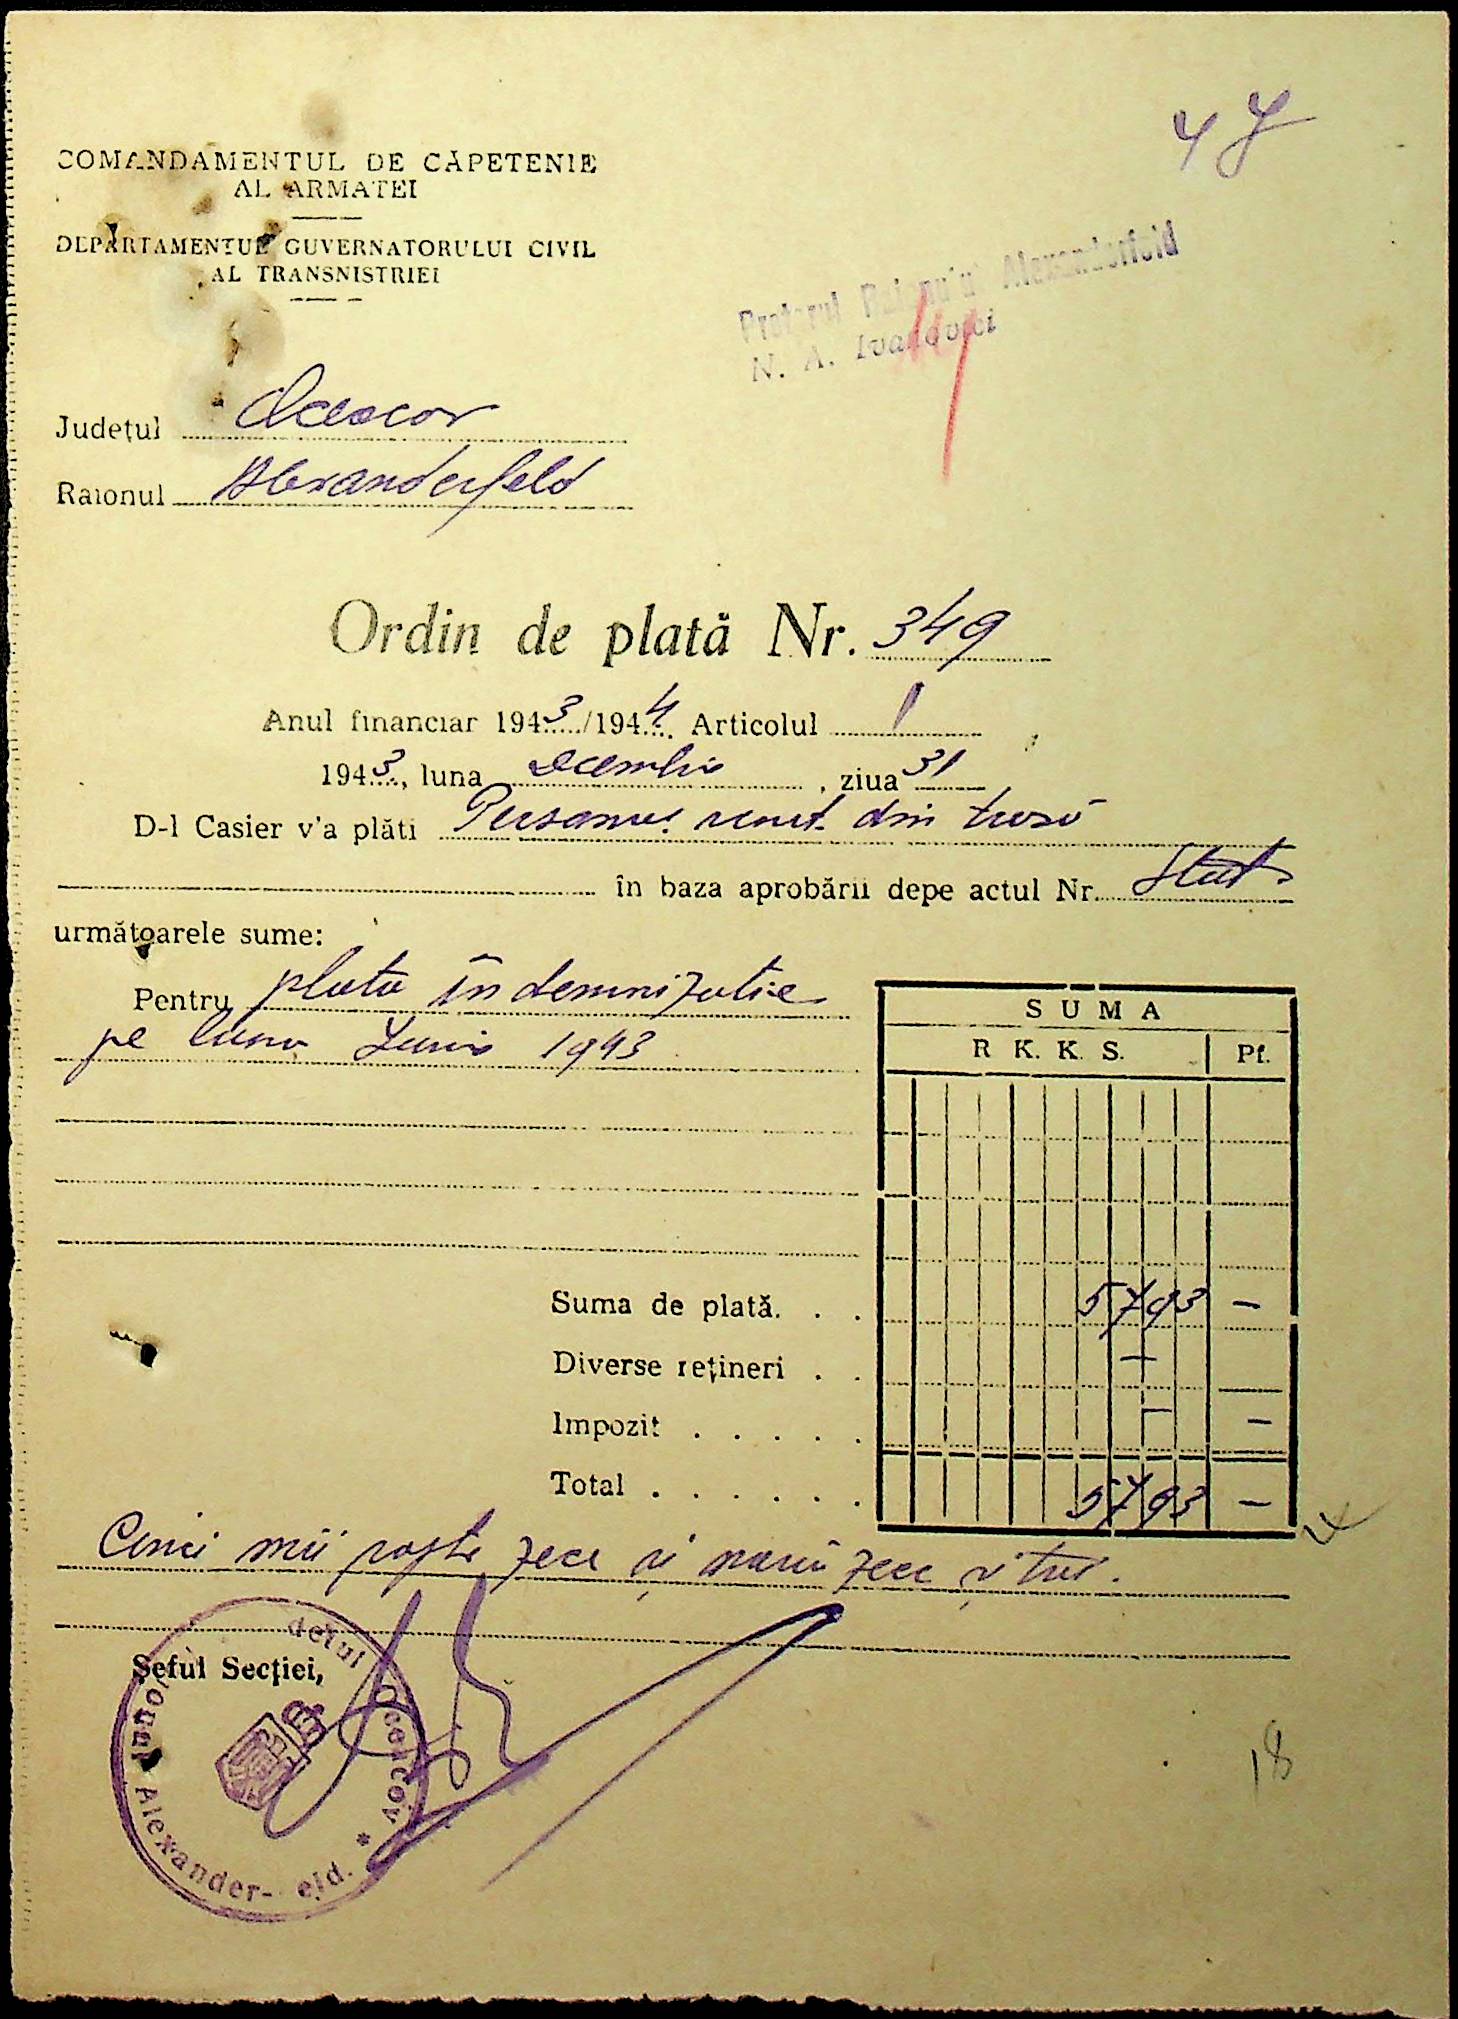 47
COMANDAMENTUL DE CĂPETENIE
AL ARMATEI
DEPARTAMENTUL GUVERNATORULUI CIVIL
AL TRANSNISTRIEI
Pretorul Raionului Alexanderfeld
N. A. Ivanovici
Județul Oceacov
Raionul Alexanderfeld
Ordin de plată Nr. 349
Anul financiar 1943/1944 Articolul 1
1943, luna Decembrie, ziua 31
D-l Casier v'a plăti din
în baza aprobării depe actul Nr. Stat
următoarele sume:
Pentru plata îndemnizatie
pe luna Iunie 1943
SUMA
R K. K. S. Pf.
Suma de plată. . . 5793 —
Diverse rețineri . . —
Impozit . . . . . — —
Total . . . . . . . 5793 —
Cinci mii șapte zece și nouă zece și trei.
Șeful Secției,
dețul Oceacov *
Alexander- eld.
18